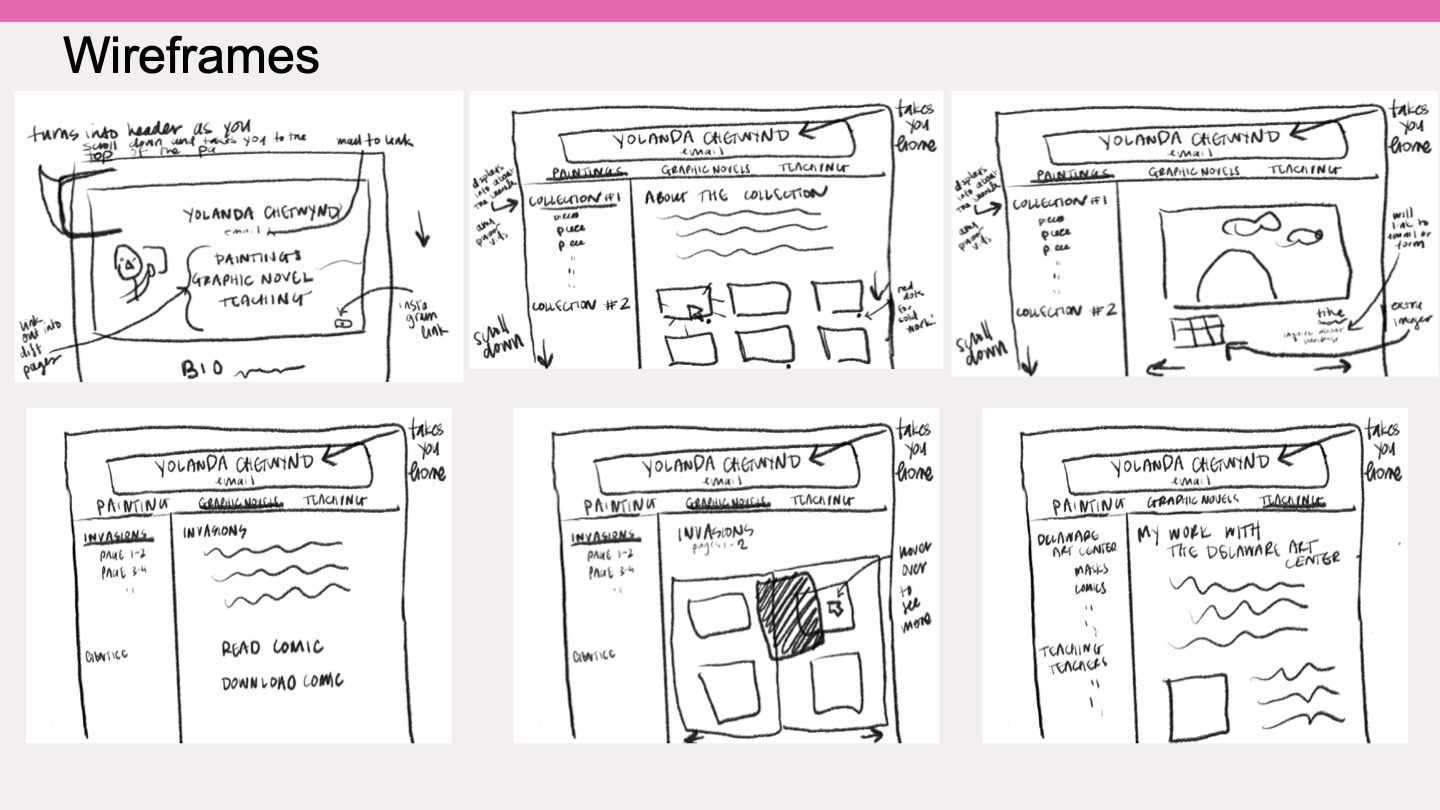 Wireframes
turns into header as you
scroll down and takes you to the
top of the pa
mail to link
YOLANDA CHETWYND
email
PAINTINGS
GRAPHIC NOVEL
TEACHING
link
out into
diff
pages
insta
gram
link
BIO
takes
you
home
YOLANDA CHETWYND
email
PAINTINGS GRAPHIC NOVELS TEACHING
displays
info about
COLLECTION #1
piece
piece
piece
"
"
COLLECTION #2
scroll
down
ABOUT THE COLLECTION
red
dots
for
sold
work!
takes
you
home
YOLANDA CHETWYND
email
PAINTINGS GRAPHIC NOVELS TEACHING
displays
info about
COLLECTION #1
piece
piece
piece
"
"
COLLECTION #2
scroll
down
will
link to
email or
form
title
inquire about
purchase
extra
images
takes
you
home
YOLANDA CHETWYND
email
PAINTING GRAPHIC NOVELS TEACHING
INVASIONS
PAGE 1-2
PAGE 3-4
"
INVASIONS
READ COMIC
DOWNLOAD COMIC
takes
you
home
YOLANDA CHETWYND
email
PAINTING GRAPHIC NOVELS TEACHING
INVASIONS
PAGE 1-2
PAGE 3-4
"
INVASIONS
pages 1-2
hover
over
to
see
more
takes
you
home
YOLANDA CHETWYND
email
PAINTING GRAPHIC NOVELS TEACHING
DELAWARE
ART CENTER
MASKS
COMICS
"
"
TEACHING
TEACHERS
"
"
MY WORK WITH
THE DELAWARE ART
CENTER